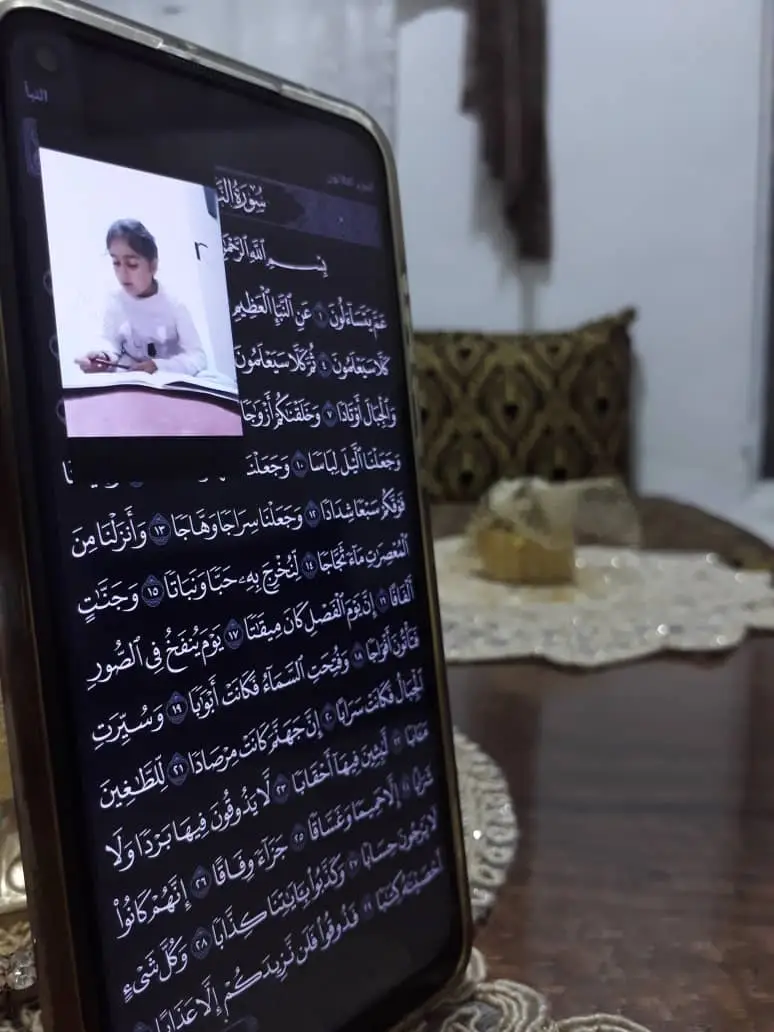 النبأ
الجزء الثلاثون
سُورَةُ النَّ
بِسْمِ اللَّهِ الرَّحْمَٰ
r
عَمَّ يَتَسَاءَلُونَ ١ عَنِ النَّبَإِ الْعَظِيمِ
كَلَّا سَيَعْلَمُونَ ٤ ثُمَّ كَلَّا سَيَعْلَمُونَ
وَالْجِبَالَ أَوْتَادًا ٧ وَخَلَقْنَاكُمْ أَزْوَاجًا
وَجَعَلْنَا اللَّيْلَ لِبَاسًا ١٠ وَجَعَلْنَا
فَوْقَكُمْ سَبْعًا شِدَادًا ١٢ وَجَعَلْنَا سِرَاجًا وَهَّاجًا ١٣ وَأَنزَلْنَا مِنَ
الْمُعْصِرَاتِ مَاءً ثَجَّاجًا ١٤ لِّنُخْرِجَ بِهِ حَبًّا وَنَبَاتًا ١٥ وَجَنَّاتٍ
أَلْفَافًا ١٦ إِنَّ يَوْمَ الْفَصْلِ كَانَ مِيقَاتًا ١٧ يَوْمَ يُنفَخُ فِي الصُّورِ
فَتَأْتُونَ أَفْوَاجًا ١٨ وَفُتِحَتِ السَّمَاءُ فَكَانَتْ أَبْوَابًا ١٩ وَسُيِّرَتِ
الْجِبَالُ فَكَانَتْ سَرَابًا ٢٠ إِنَّ جَهَنَّمَ كَانَتْ مِرْصَادًا ٢١ لِّلطَّاغِينَ
مَآبًا ٢٢ لَّابِثِينَ فِيهَا أَحْقَابًا ٢٣ لَّا يَذُوقُونَ فِيهَا بَرْدًا وَلَا
شَرَابًا ٢٤ إِلَّا حَمِيمًا وَغَسَّاقًا ٢٥ جَزَاءً وِفَاقًا ٢٦ إِنَّهُمْ كَانُوا
لَا يَرْجُونَ حِسَابًا ٢٧ وَكَذَّبُوا بِآيَاتِنَا كِذَّابًا ٢٨ وَكُلَّ شَيْءٍ
أَحْصَيْنَاهُ كِتَابًا ٢٩ فَذُوقُوا فَلَن نَّزِيدَكُمْ إِلَّا عَذَابًا